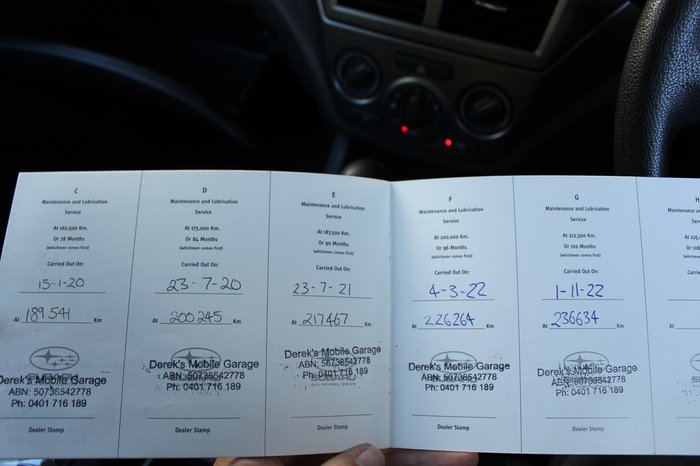 C
Maintenance and Lubrication
Service
At 162,500 Km.
Or 78 Months
(whichever comes first)
Carried Out On:
15-1-20
At 189541 Km
SUBARU
Derek's Mobile Garage
ABN: 50738542778
Ph: 0401 716 189
Dealer Stamp
D
Maintenance and Lubrication
Service
At 175,000 Km.
Or 84 Months
(whichever comes first)
Carried Out On:
23-7-20
At 200245 Km
Derek's Mobile Garage
ABN: 50738542778
Ph: 0401 716 189
Dealer Stamp
E
Maintenance and Lubrication
Service
At 187,500 Km.
Or 90 Months
(whichever comes first)
Carried Out On:
23-7-21
At 217467 Km
Derek's Mobile Garage
ABN: 50738542778
Ph: 0401 716 189
SUBARU
Dealer Stamp
F
Maintenance and Lubrication
Service
At 200,000 Km.
Or 96 Months
(whichever comes first)
Carried Out On:
4-3-22
At 226264 Km
Derek's Mobile Garage
ABN: 50738542778
Ph: 0401 716 189
Dealer Stamp
G
Maintenance and Lubrication
Service
At 212,500 Km.
Or 102 Months
(whichever comes first)
Carried Out On:
1-11-22
At 236634 Km
Derek's Mobile Garage
ABN: 50738542778
Ph: 0401 716 189
Dealer Stamp
H
At